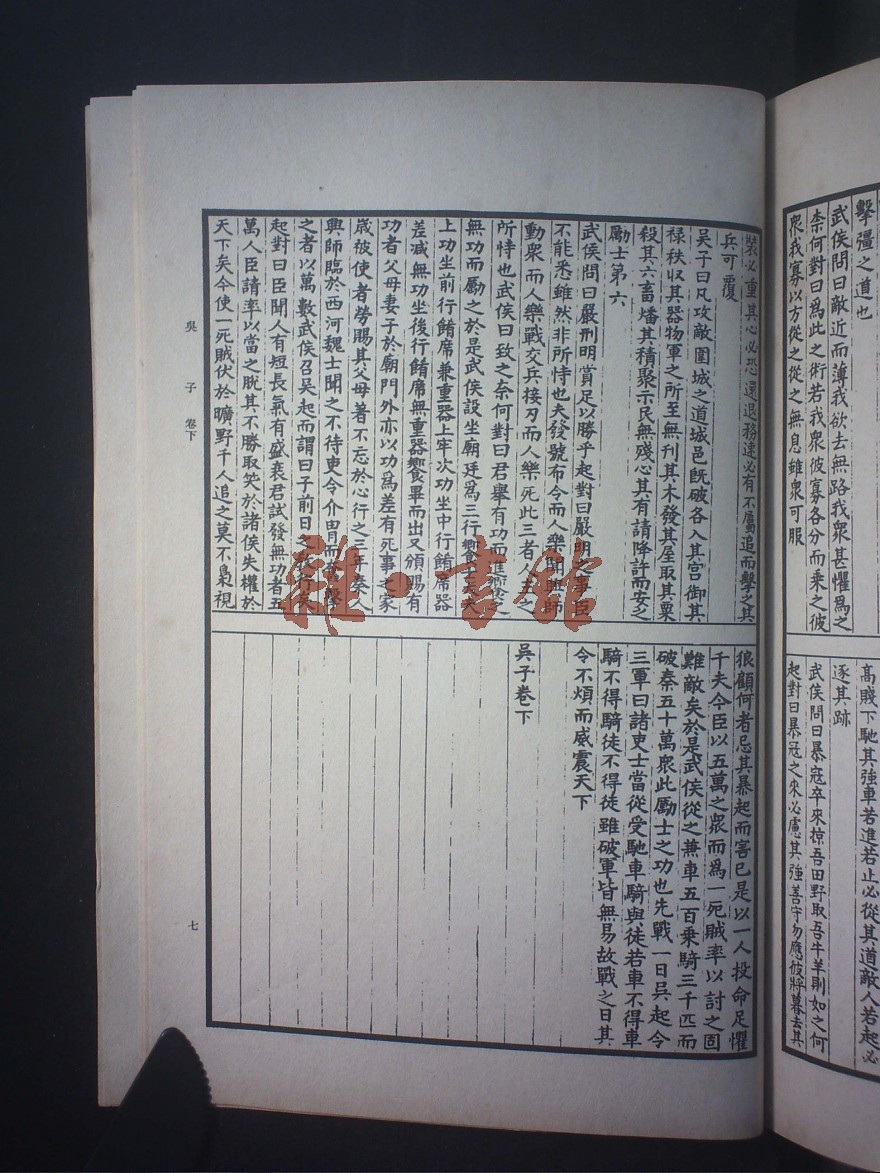 擊彊之道也
武侯問曰敵近而薄我欲去無路我衆甚懼爲之
柰何對曰爲此之術若我衆彼寡各分而乘之彼
衆我寡以方從之從之無息雖衆可服
高賤下馳其強車若進若止必從其道敵人若起必
逐其跡
武侯問曰暴寇卒來掠吾田野取吾牛羊則如之何
起對曰暴寇之來必慮其強善守勿應彼將暮去其
裝必重其心必恐還退務速必有不屬追而擊之其
兵可覆
吳子曰凡攻敵圍城之道城邑既破各入其宮御其
祿秩収其器物軍之所至無刊其木發其屋取其粟
殺其六畜燔其積聚示民無殘心其有請降許而安之
勵士第六
武侯問曰嚴刑明賞足以勝乎起對曰嚴明之事臣
不能悉雖然非所恃也夫發號布令而人樂聞興師
動衆而人樂戰交兵接刃而人樂死此三者人主之
所恃也武侯曰致之奈何對曰君舉有功而進饗之
無功而勵之於是武侯設坐廟廷爲三行饗士大夫
上功坐前行餚席兼重器上牢次功坐中行餚席器
差減無功坐後行餚席無重器饗畢而出又頒賜有
功者父母妻子於廟門外亦以功爲差有死事之家
歲被使者勞賜其父母著不忘於心行之三年秦人
興師臨於西河魏士聞之不待吏令介胄而奮擊
之者以萬數武侯召吳起而謂曰子前日之教行矣
起對曰臣聞人有短長氣有盛衰君試發無功者五
萬人臣請率以當之脫其不勝取笑於諸侯失權於
天下矣今使一死賊伏於曠野千人追之莫不梟視
狼顧何者忌其暴起而害己是以一人投命足懼
千夫今臣以五萬之衆而爲一死賊率以討之固
難敵矣於是武侯從之兼車五百乘騎三千匹而
破秦五十萬衆此勵士之功也先戰一日吳起令
三軍曰諸吏士當從受馳車騎與徒若車不得車
騎不得騎徒不得徒雖破軍皆無易故戰之日其
令不煩而威震天下
吳子卷下
吳子 卷下
七
雜·書館